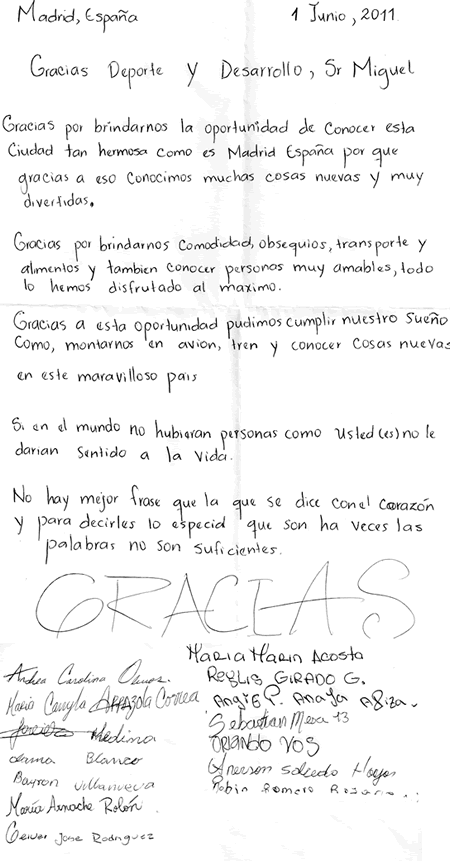 Madrid, España 1 Junio, 2011
Gracias Deporte y Desarrollo, Sr Miguel
Gracias por brindarnos la oportunidad de conocer esta
Ciudad tan hermosa como es Madrid España por que
gracias a eso conocimos muchas cosas nuevas y muy
divertidas.
Gracias por brindarnos comodidad, obsequios, transporte y
alimentos y tambien conocer personas muy amables, todo
lo hemos disfrutado al maximo.
Gracias a esta oportunidad pudimos cumplir nuestro sueño
como, montarnos en avion, tren y conocer cosas nuevas
en este maravilloso pais
Si en el mundo no hubieran personas como usted(es) no le
darian sentido a la vida.
No hay mejor frase que la que se dice con el corazón
y para decirles lo especial que son ha veces las
palabras no son suficientes.
GRACIAS
Maria Marin Acosta
Andrea Carolina
Reylis Girado G.
Maria Camyla Arrazola Correa
Angie P. Anaya
Medina
Sebastian Meza 13
Blanco
Orlando Vos
Bayron Villanueva
Salcedo Hoyos
María Arnache Rolón
Robin Romero
Jose Rodriguez